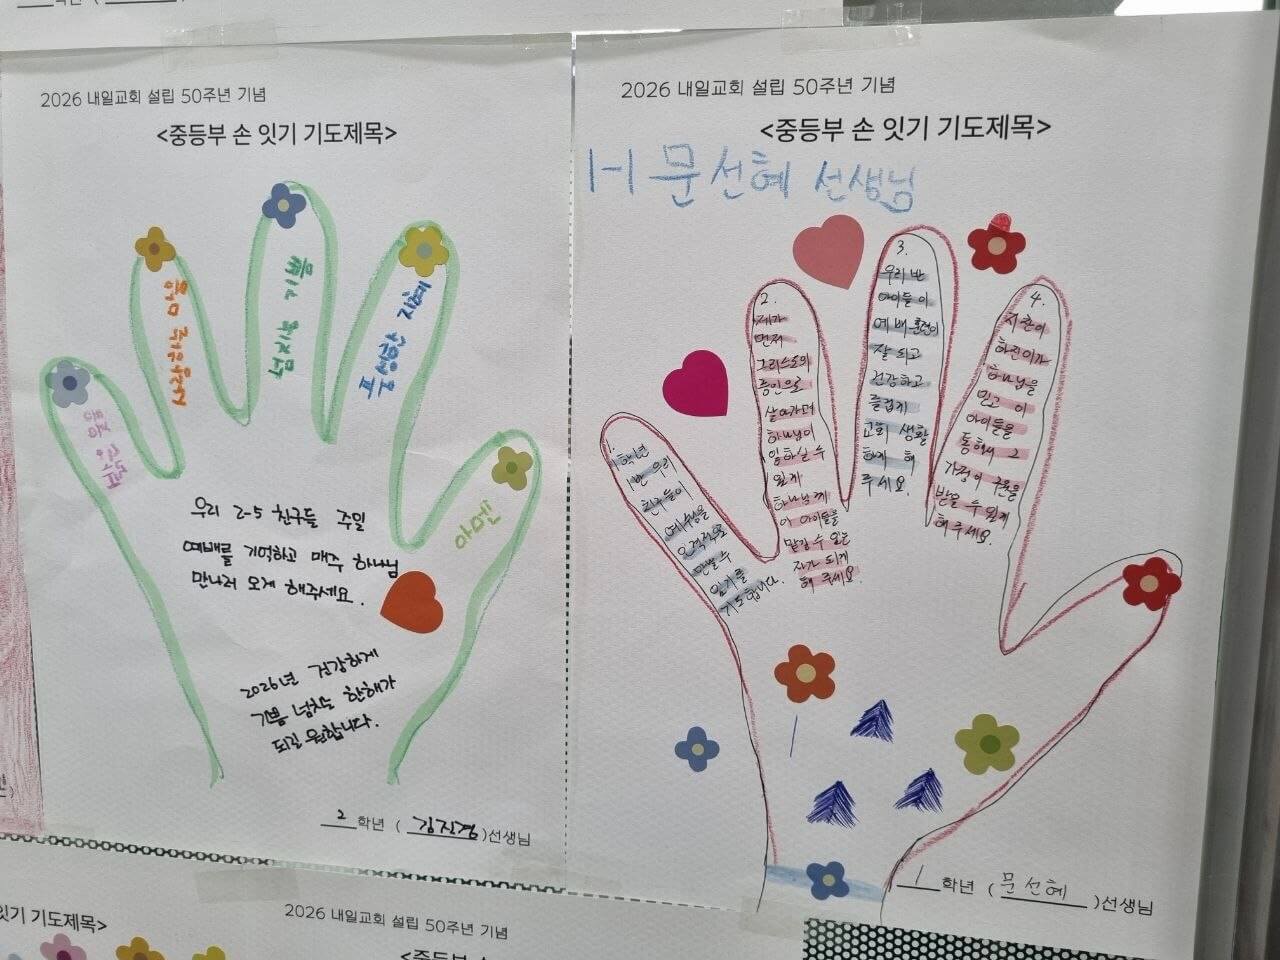 2026 내일교회 설립 50주년 기념
<중등부 손 잇기 기도제목>
우리 2-5 친구들 주일
예배를 기억하고 매주 하나님
만나러 오게 해주세요.
2026년 건강하게
기쁨 넘치는 한해가
되길 원합니다.
아멘
2학년 (김진경)선생님
2026 내일교회 설립 50주년 기념
<중등부 손 잇기 기도제목>
1-1 문선혜 선생님
1.
1학년
1반 우리
친구들이
예수님을
인격적으로
만날 수
있기를
기도합니다.
2.
제가
먼저
그리스도의
증인으로
살아가며
하나님이
일하실 수
있게
하나님께
이 아이들을
맡길 수 있는
자가 되게
해 주세요.
3.
우리 반
아이들이
예배 훈련이
잘 되고
건강하고
즐겁게
교회 생활
하게 해
주세요.
4.
하나님을
믿고 이
아이들을
통해서 그
가정이 구원을
받을 수 있게
해 주세요.
1학년 (문선혜)선생님
잇기 기도제목>
2026 내일교회 설립 50주년 기념
<중등부 손